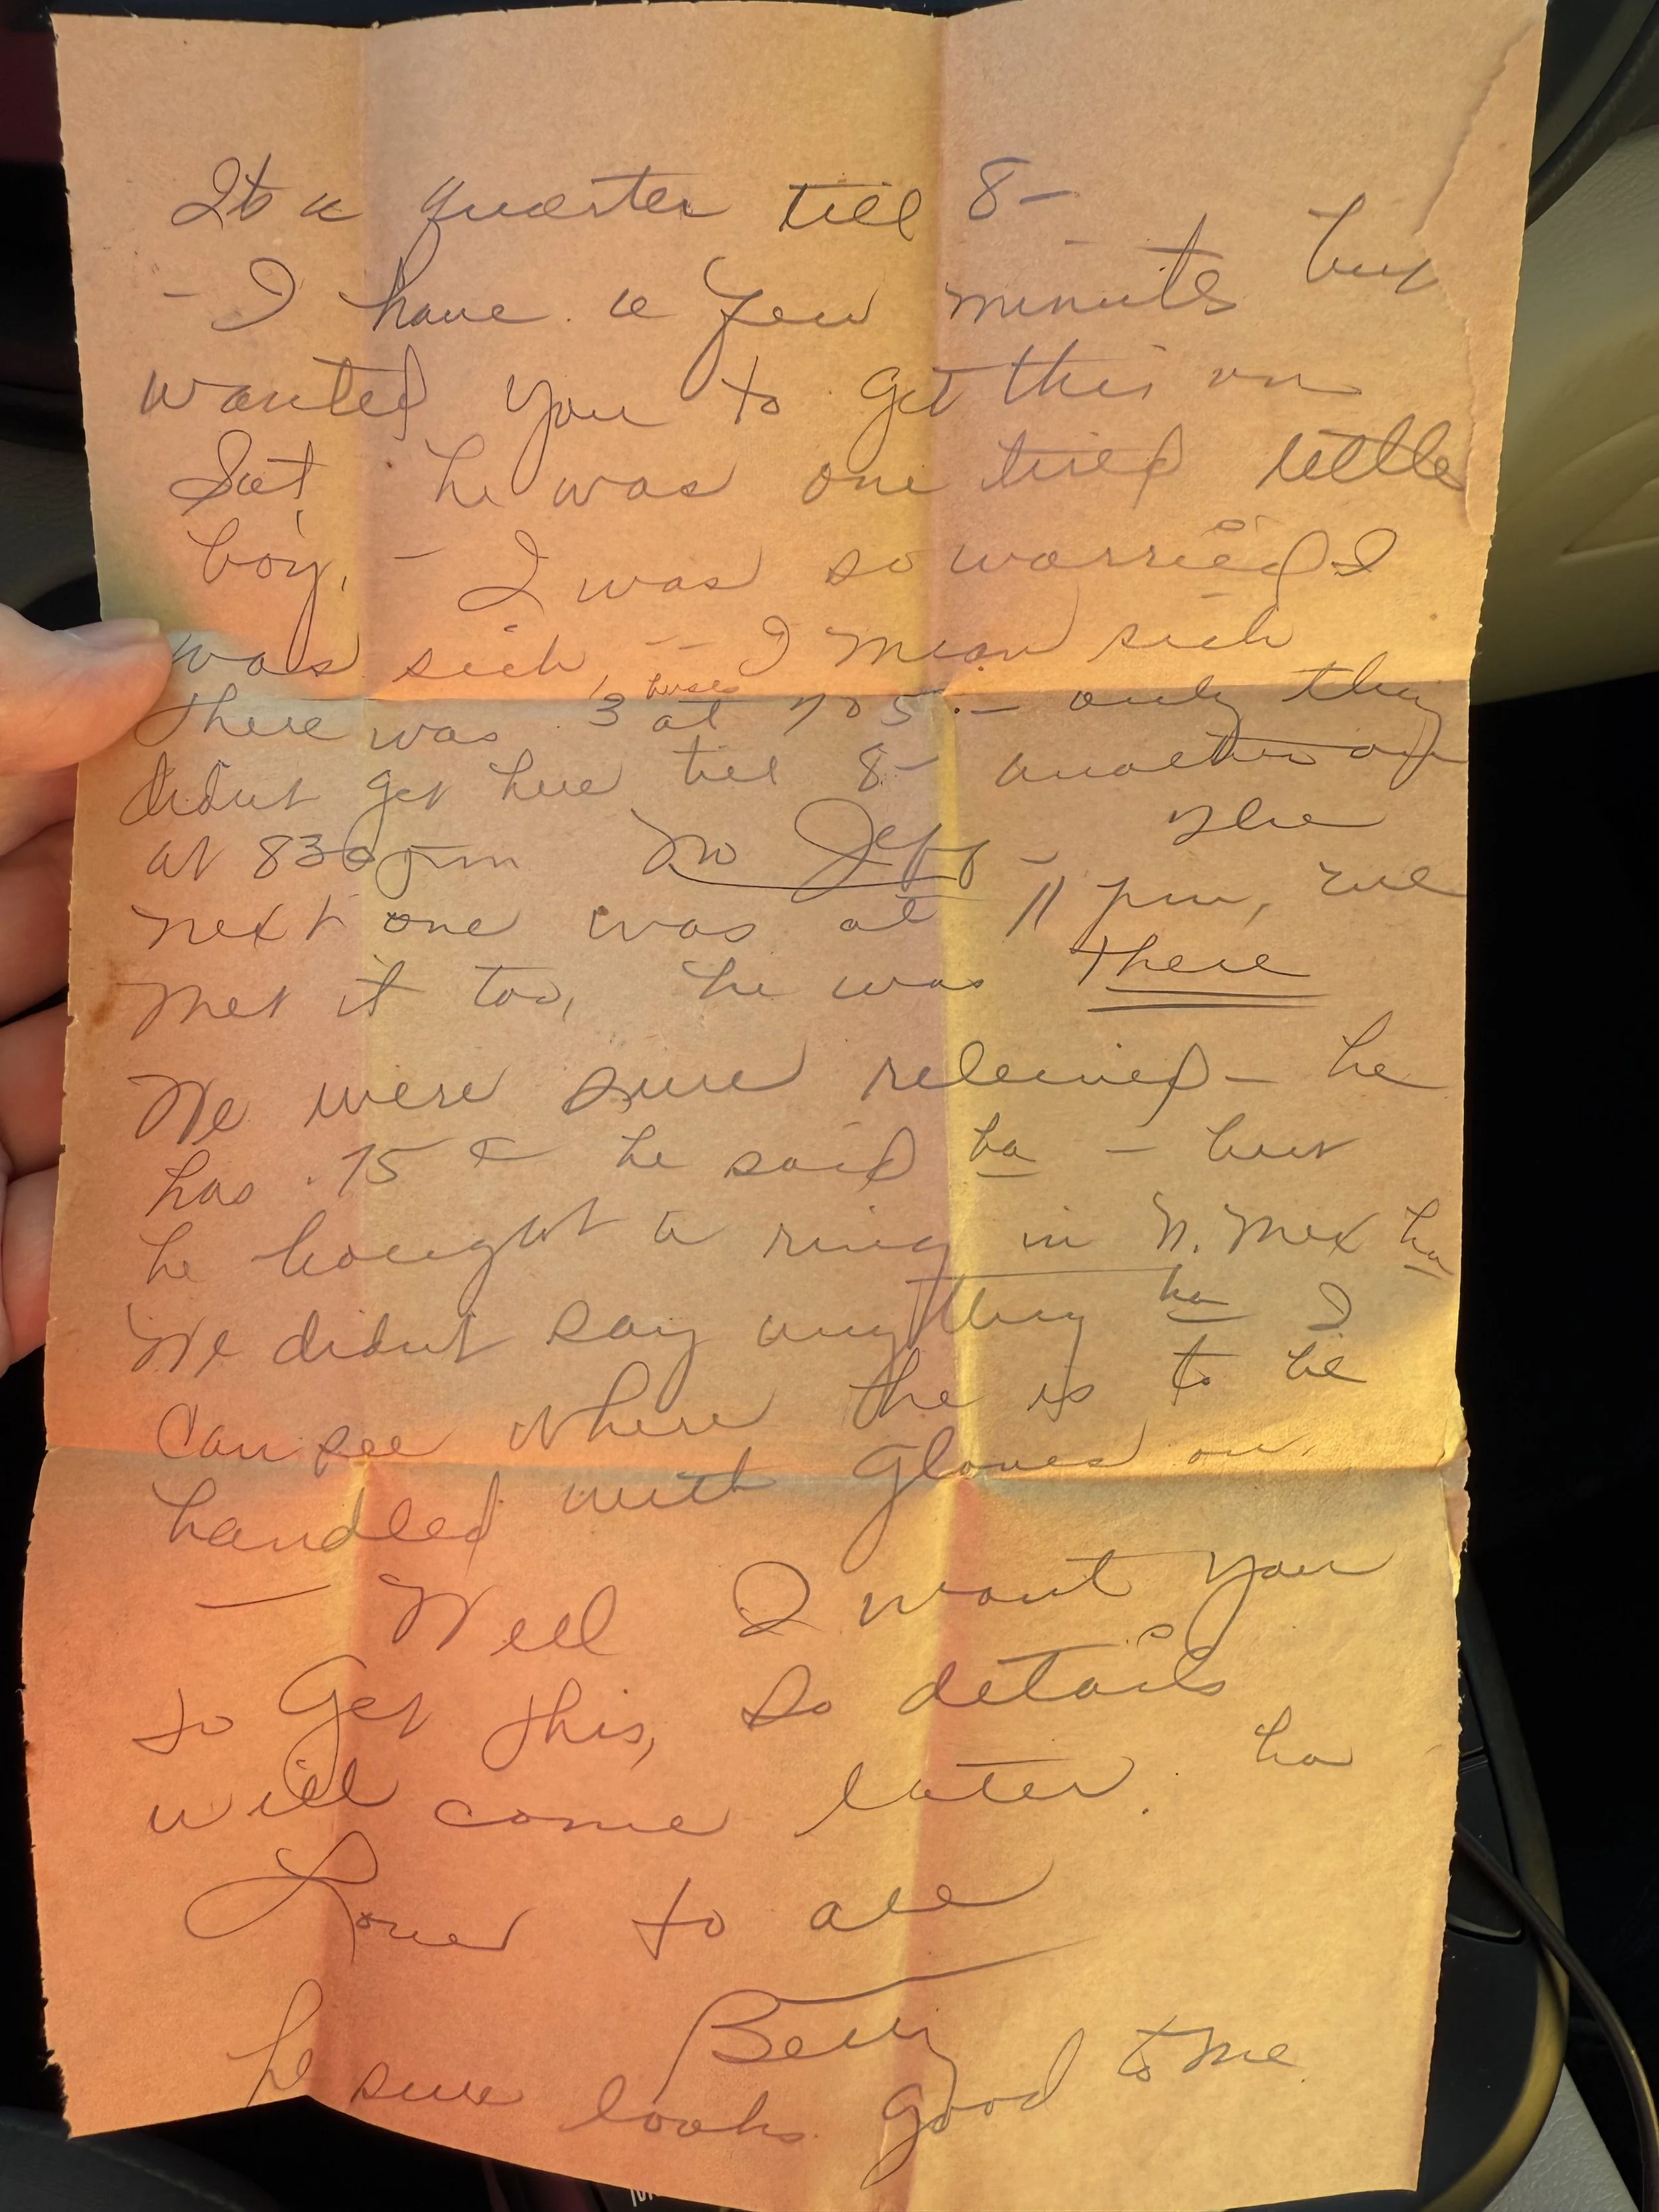 Its a quarter till 8-
- I have a few minutes but
wanted you to get this on
Sat, he was one tired little
boy, - I was so worried I
was sick -- I mean sick
There was 3 buses at 705 - only they
didnt get here till 8- another one
at 830 pm No Jeff - The
next one was at 11 pm, we
met it too, he was there
We were sure releived - he
has .75 ¢ he said ha - but
he bought a ring in N. Mex ha
We didnt say anything ha I
can see where the is to be
handled with gloves on.
- Well I want you
to get this, So details
will come later. ha
Love to all
Betty
he sure looks good to me